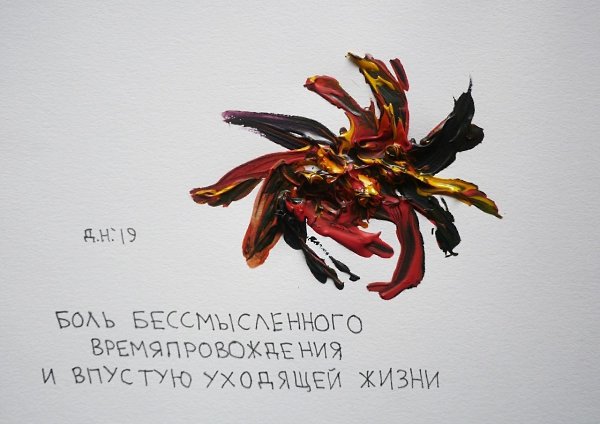 Д.Н.'19
БОЛЬ БЕССМЫСЛЕННОГО
ВРЕМЯПРОВОЖДЕНИЯ
И ВПУСТУЮ УХОДЯЩЕЙ ЖИЗНИ